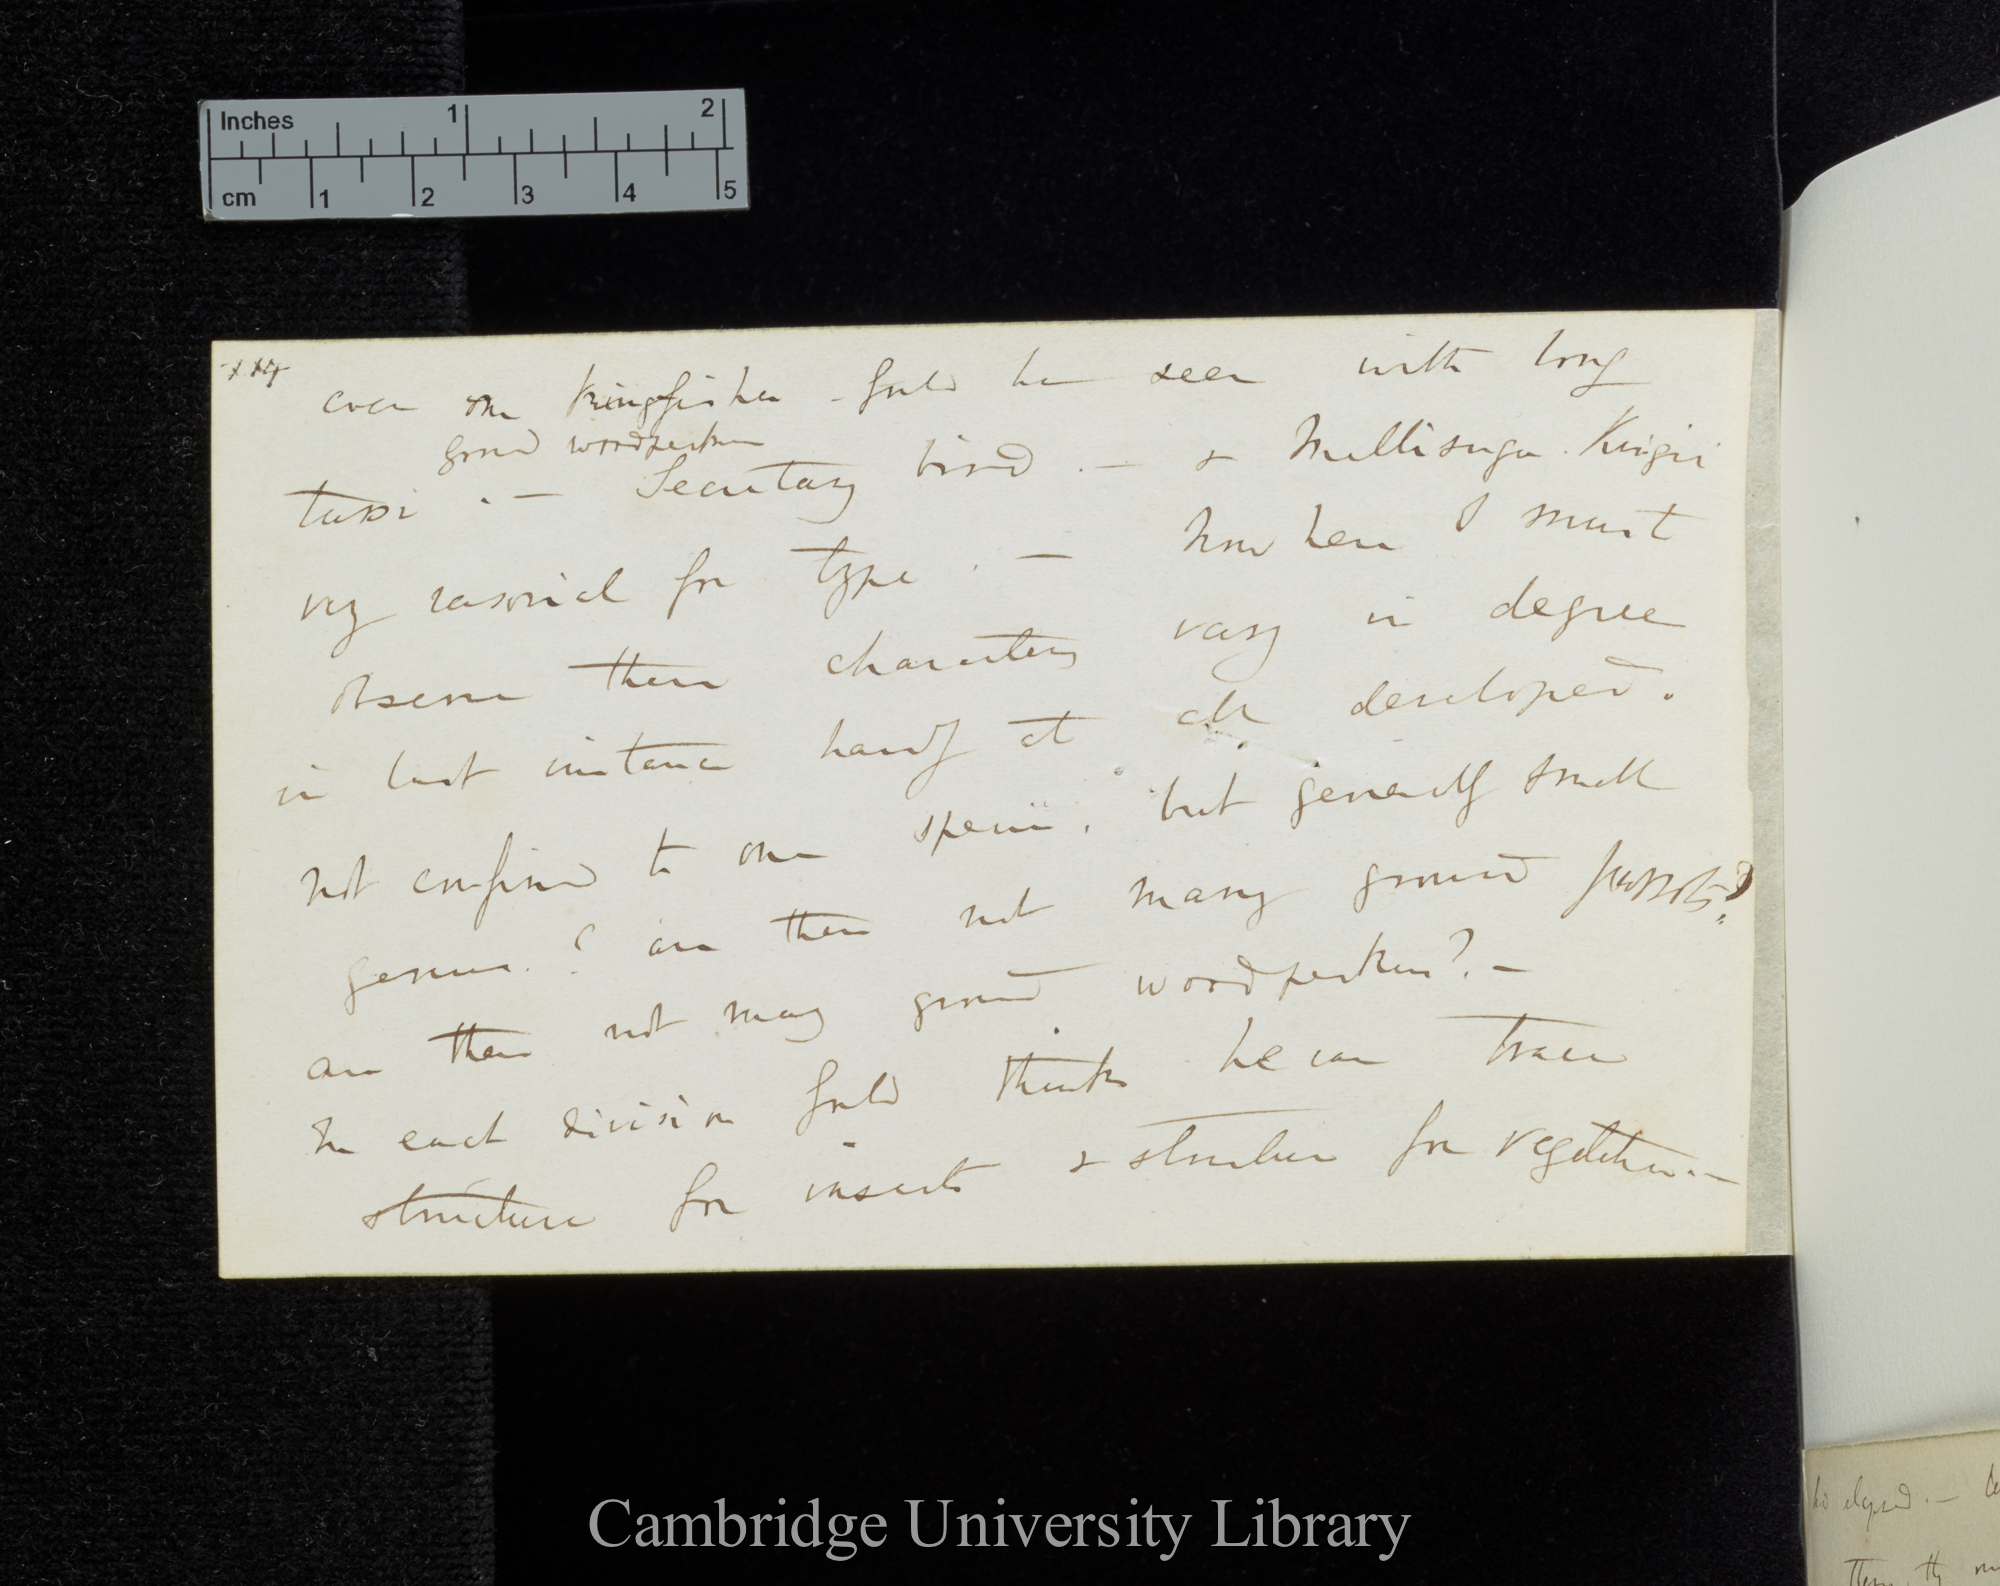 Inches 1 2
cm 1 2 3 4 5
114
even one Kingfisher - Gould has seen with long
ground woodpecker
tarsi .— Secretary bird .— & Mellisuga Kingii
very rasorial for type .— Now here I must
observe these characters vary in degree
in last instance hardly at all developed.
not confined to one species, but generally small
genus. ? are there not many ground parrots?
are there not many ground woodpeckers? —
In each division Gould thinks he can trace
structure for insects & structure for vegetation. —
Cambridge University Library
elapsed. —